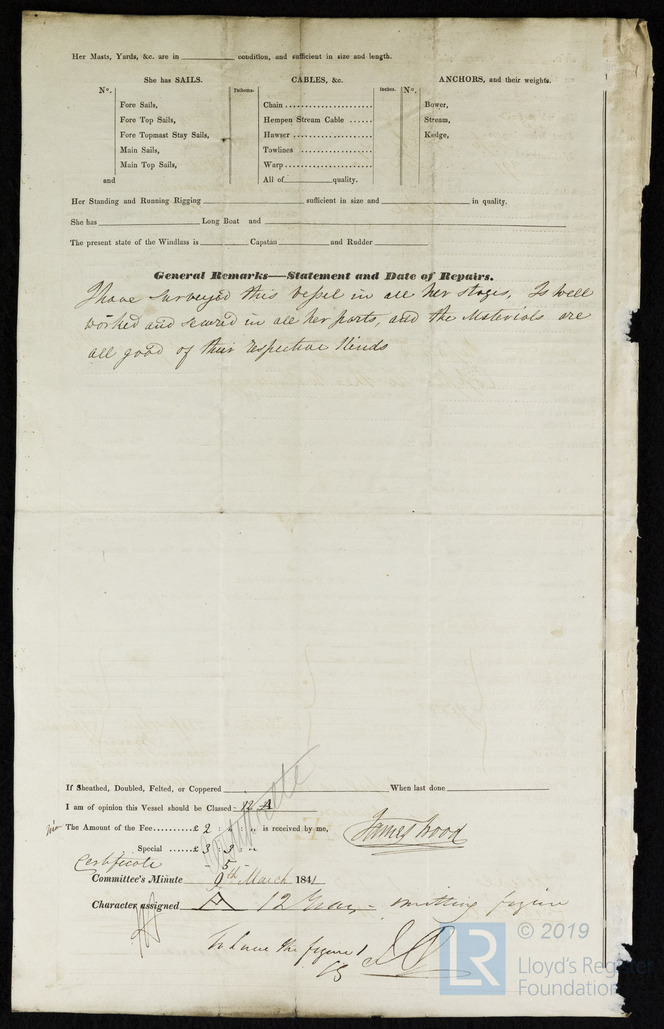 Her Masts, Yards, &c. are in ____ condition, and sufficient in size and length.
She has SAILS. CABLES, &c. ANCHORS, and their weights.
No. Fathoms. Inches. No.
Fore Sails, Chain Bower,
Fore Top Sails, Hempen Stream Cable Stream,
Fore Topmast Stay Sails, Hawser Kedge,
Main Sails, Towlines
Main Top Sails, Warp
and All of ____ quality.
Her Standing and Running Rigging ____ sufficient in size and ____ in quality.
She has ____ Long Boat and ____
The present state of the Windlass is ____ Capstan ____ and Rudder ____
General Remarks—Statement and Date of Repairs.
I have surveyed this Vessel in all her stages, Is well
worked and secured in all her parts, and the Materials are
all good of their respective Kinds
If Sheathed, Doubled, Felted, or Coppered ____ When last done ____
I am of opinion this Vessel should be Classed 12 A
The Amount of the Fee..........£ 2 : " : " is received by me, James Wood
Special ......£ 3 : 3 : "
Certificate - 5 -
Committee's Minute 9th March 1841
Character assigned A 12 Years - omitting figure
To have the figure 1
© 2019
LR Lloyd's Register
Foundation